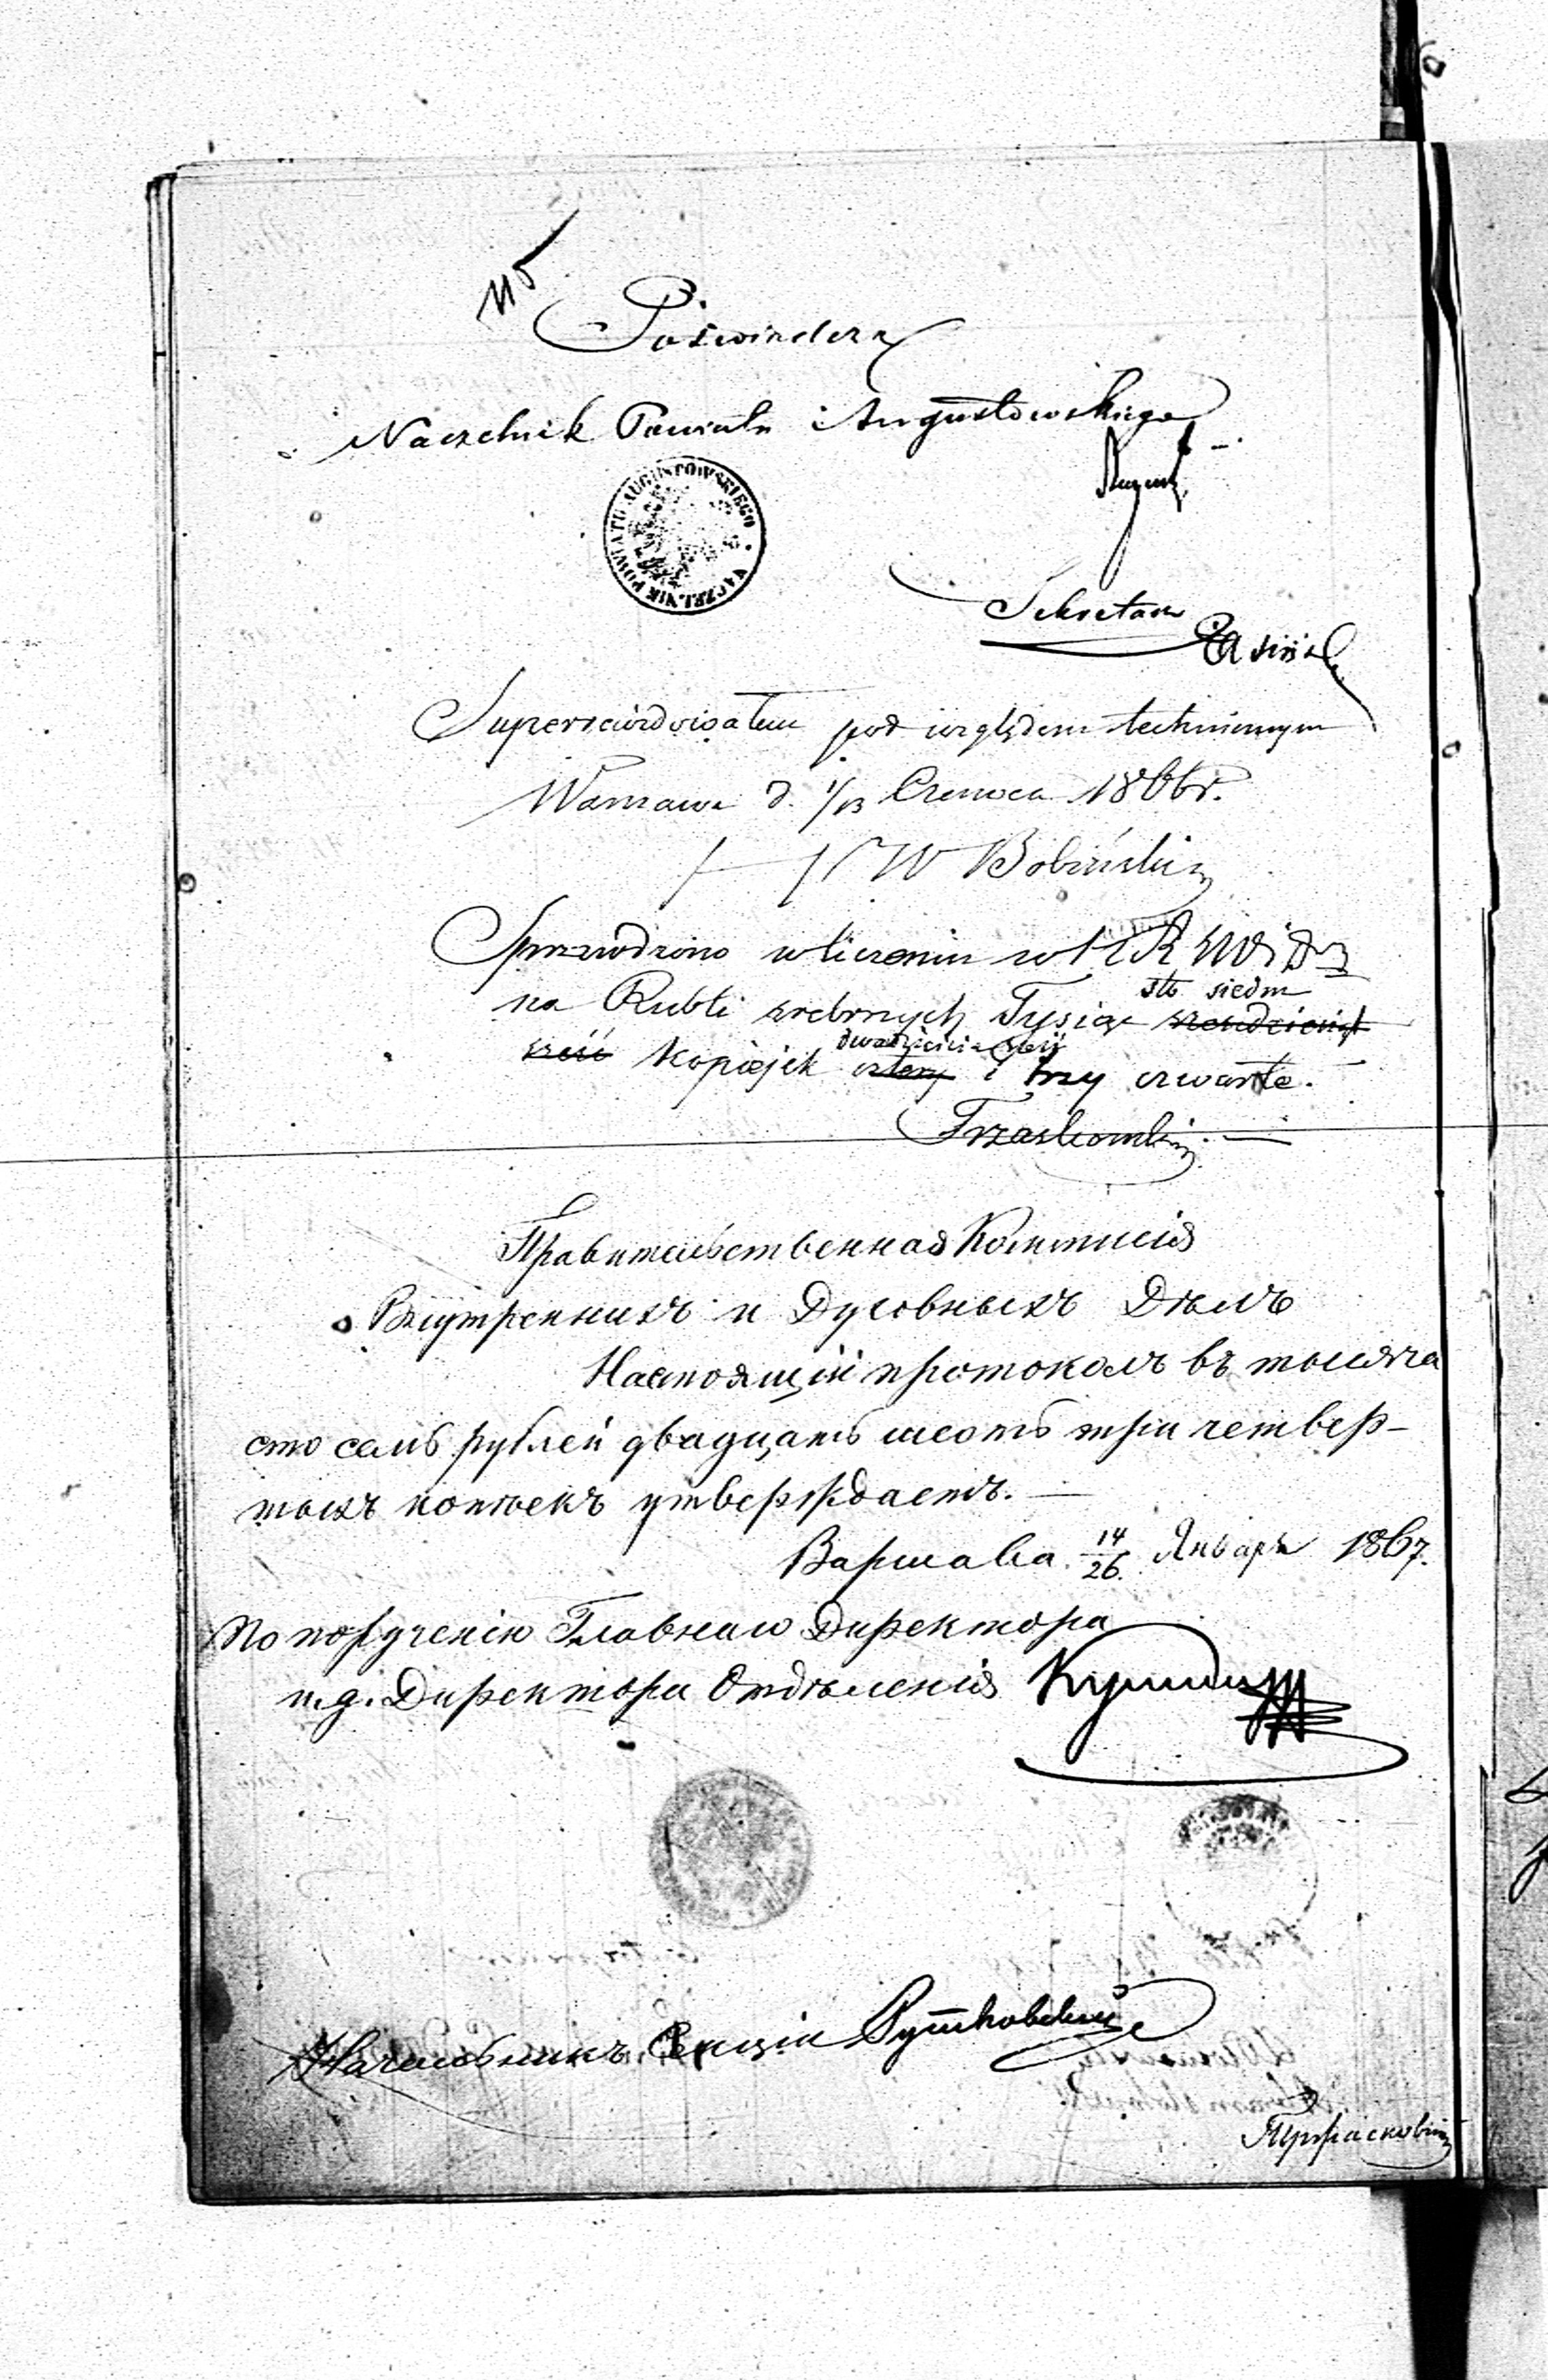 Poświadcza
Naczelnik Powiatu Augustowskiego
NACZELNIK POWIATU AUGUSTOWSKIEGO
Sekretarz
Superrewidowałem pod względem technicznym
Warszawa d. 1/13 Czerwca 1866 r.
W Bobiński
Sprawdzono w liczeniu w K R S W i D
na Rubli srebrnych Tysiąc sto siedm sześćdziesiąt
sześć kopiejek dwadzieścia sześć cztery i trzy czwarte.
Trzaskowski
Правительственная Коммисія
Внутреннихъ и Духовныхъ Дѣлъ
Настоящій протоколъ въ тысяча
сто семь рублей двадцать шесть три четвер-
тыхъ копѣекъ утверждаетъ.
Варшава 14/26 Января 1867.
По порученію Главнаго Директора
и.д. Директора Отдѣленія
Начальникъ Секціи Рутковскій